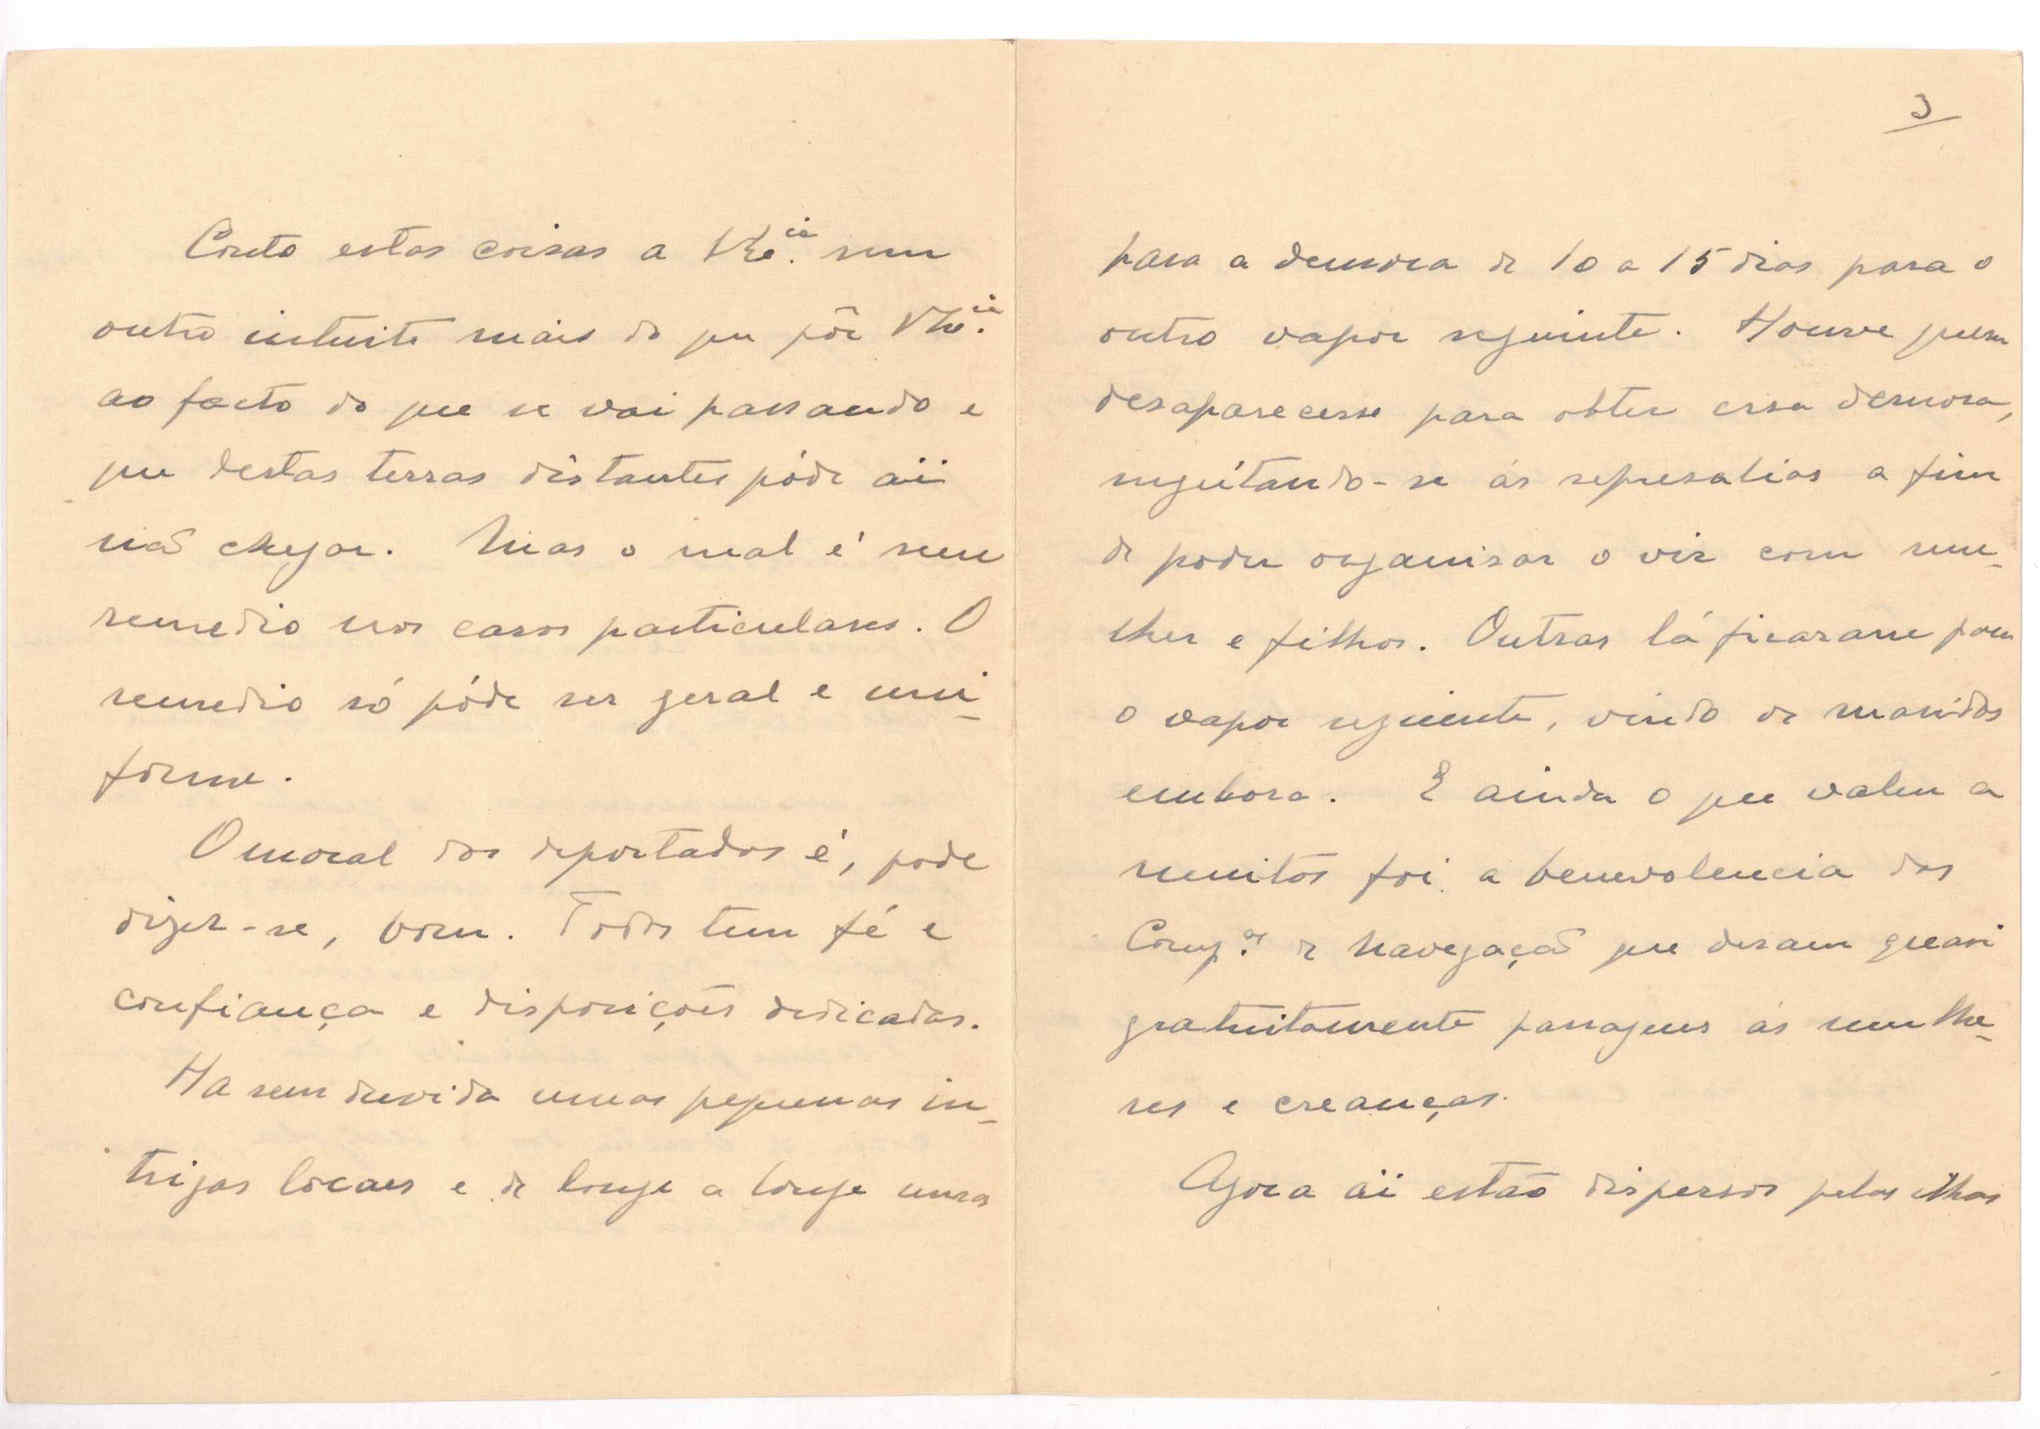 Conto estas coisas a V. Ex.cia sem
outro intuito mais do que pôr V. Ex.cia
ao facto do que se vai passando e
que destas terras distantes póde aí
não chegar. Mas o mal é sem
remedio nos casos particulares. O
remedio só póde ser geral e uni-
forme.
O moral dos deportados é, pode
dizer-se, bom. Todos tem fé e
confiança e disposições dedicadas.
Ha sem duvida umas pequenas in-
trigas locaes e de longe a longe umas
3
para a demora de 10 a 15 dias para o
outro vapor seguinte. Houve quem
desaparecesse para obter essa demora,
sugeitando-se ás represalias a fim
de poder organisar o vir com mu-
lher e filhos. Outras lá ficaram para
o vapor seguinte, vindo os maridos
embora. E ainda o que valeu a
muitos foi a benevolencia das
Comp.as de Navegação que deram quasi
gratuitamente passagens ás mulhe-
res e creanças.
Agora aí estão dispersos pelas ilhas